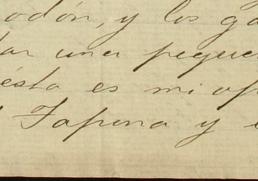 odón, y los ga
tar una peque
ésta es mi op
Tapona y e